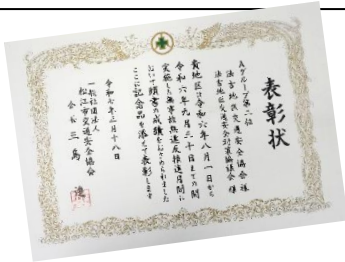 表彰状
Aグループ第二位
法吉地区交通安全協会様
法吉地区交通安全対策協議会様
貴地区は令和六年八月一日から
令和六年九月三十日までの間
実施した無事故無違反推進月間に
おいて頭書の成績をおさめられました
ここに記念品を添えて表彰します
令和七年三月十八日
一般社団法人
松江市交通安全協会
会長三島